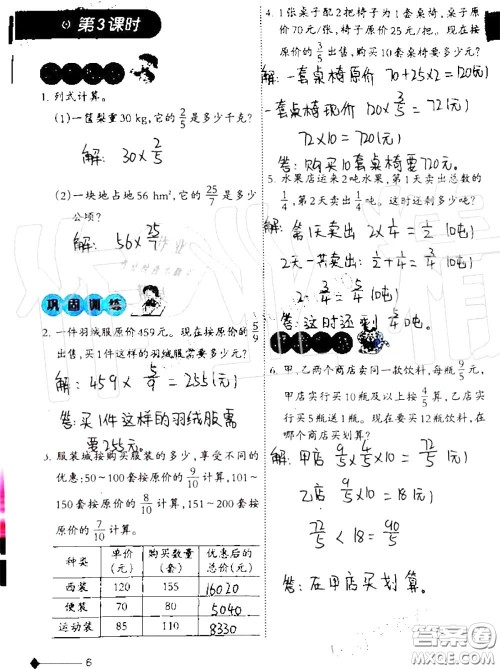 第3课时
1. 列式计算。
(1)一筐梨重30 kg,它的2/5是多少千克?
解: 30×2/5
(2)一块地占地56 hm²,它的25/7是多少
公顷?
解: 56×25/7
巩固训练
2. 一件羽绒服原价459元。现在按原价的5/9
出售,买1件这样的羽绒服需要多少元?
解: 459×5/9=255(元)
答:买1件这样的羽绒服需
要255元。
3. 服装城按购买服装的多少,享受不同的
优惠:50~100套按原价的9/10计算,101~
150套按原价的8/10计算,151~200套按
原价的7/10计算。
种类 单价(元) 购买数量(套) 优惠后的总价(元)
西装 120 155 16020
便装 70 80 5040
运动装 85 110 8330
6
4. 1张桌子配2把椅子为1套桌椅,桌子原
价70元/张,椅子原价25元/把。现在按
原价的3/5出售,购买10套桌椅要多少元?
解:一套桌椅原价 70+25×2=120(元)
一套桌椅现价 120×3/5=72(元)
72×10=720(元)
答:购买10套桌椅要720元.
5. 水果店运来2吨水果,第1天卖出总数的
1/4,第2天卖出3/4吨。这时还剩多少吨?
解:第1天卖出 2×1/4=1/2(吨)
2天一共卖出:1/2+1/4=3/4(吨)
2-3/4=5/4(吨)
答:这时还剩5/4吨.
6. 甲、乙两个商店卖同一款饮料,每瓶9/5元,
甲店实行买10瓶及以上按4/5算,乙店实
行买5瓶送1瓶。现在要买12瓶饮料,在
哪个商店买划算?
解:甲店 9/5×4/5×10=72/5(元)
乙店 9/5×10=18(元)
72/5<18=90/5
答:在甲店买划算.
答案圈
MXQE.COM